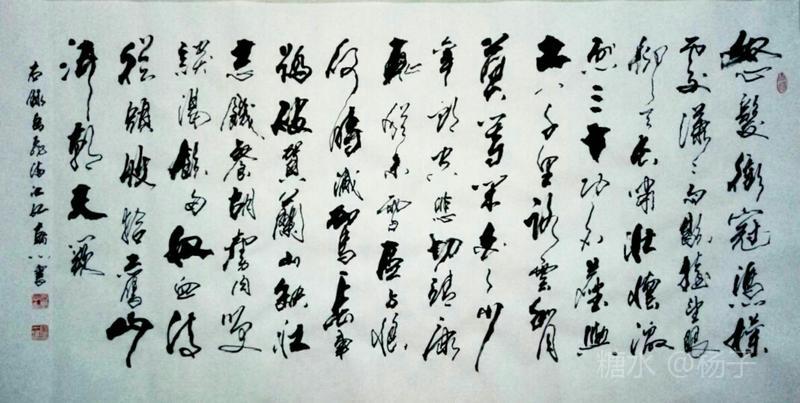 怒髮衝冠憑欄
處瀟瀟雨歇抬望眼
仰天長嘯壯懷激
烈三十功名塵與
土八千里路雲和月
莫等閒白了少
年頭空悲切靖康
恥猶未雪臣子恨
何時滅駕長車
踏破賀蘭山缺壯
志飢餐胡虜肉笑
談渴飲匈奴血待
從頭收拾舊山
河朝天闕
右錄岳飛滿江紅 書
糖水 @杨子